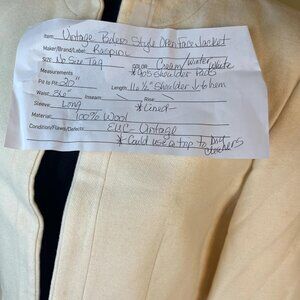 Item: Vintage Bolero Style Open Face Jacket
Maker/Brand/Label: Raspini
SIZE: No Size Tag COLOR Cream/Winter White
Measurements * 90s Shoulder Pads
Pit to Pit 20" Length 16 ½" Shoulder to hem
Waist 36" Inseam Rise
Sleeve Long *Lined-
Material 100% Wool
Condition/Flaws/Defects EUC- Vintage
* Could use a trip to Dry
cleaners